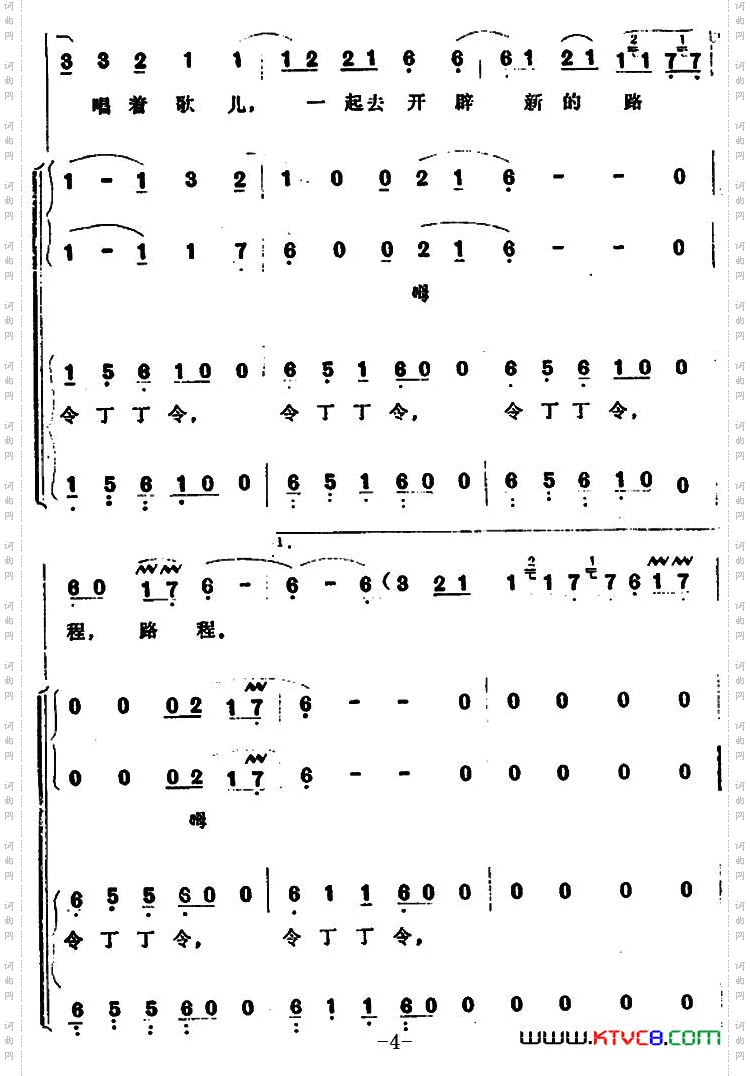 3 3 2 1 1 | 1 2 2 1 6 6 | 6 1 2 1 2 1 1 1 7 7
唱着歌儿, 一起去开辟 新的路
1 - 1 3 2 | 1 0 0 2 1 6 - - 0
1 - 1 1 7 | 6 0 0 2 1 6 - - 0
嗯
1 5 6 1 0 0 | 6 5 1 6 0 0 | 6 5 6 1 0 0
令丁丁令, 令丁丁令, 令丁丁令,
1 5 6 1 0 0 | 6 5 1 6 0 0 | 6 5 6 1 0 0
1.
6 0 1 7 6 - | 6 - 6 (3 2 1 1 2 1 7 1 7 6 1 7
程, 路 程。
0 0 0 2 1 7 | 6 - - 0 | 0 0 0 0
0 0 0 2 1 7 | 6 - - 0 0 0 0 0
嗯
6 5 5 6 0 0 | 6 1 1 6 0 0 | 0 0 0 0
令丁丁令, 令丁丁令,
6 5 5 6 0 0 6 1 1 6 0 0 0 0 0 0
-4-
WWW.KTVC8.COM
词曲网